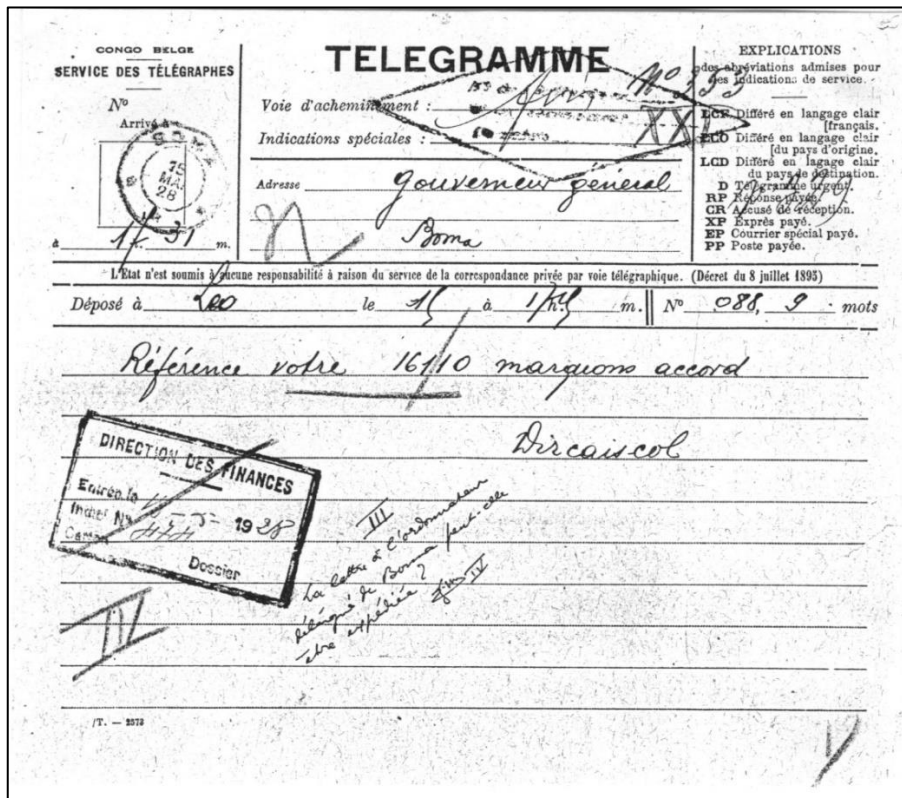 CONGO BELGE
SERVICE DES TÉLÉGRAPHES
No
Arrivé à
BOMA
15
MAI
28
à m.
TELEGRAMME
No 353
Voie d'acheminement :
XXI
Indications spéciales :
Adresse Gouverneur général
Boma
EXPLICATIONS
des abréviations admises pour
les indications de service.
LCF Différé en langage clair
[français.
LCO Différé en langage clair
[du pays d'origine.
LCD Différé en lagage clair
du pays de destination.
D Télégramme urgent.
RP Réponse payée.
CR Accusé de réception.
XP Exprès payé.
EP Courrier spécial payé.
PP Poste payée.
L'Etat n'est soumis à aucune responsabilité à raison du service de la correspondance privée par voie télégraphique. (Décret du 8 juillet 1895)
Déposé à Leo le 15 à m. No 088, 9 mots
Référence votre 16110 marquons accord
Dircaiscol
DIRECTION DES FINANCES
Entrée le
Indict No 1928
Dossier
III
La lettre à l'ordonnateur
délégué de Boma peut-elle
être expédiée ?
IV
IV
V
/T. — 2573